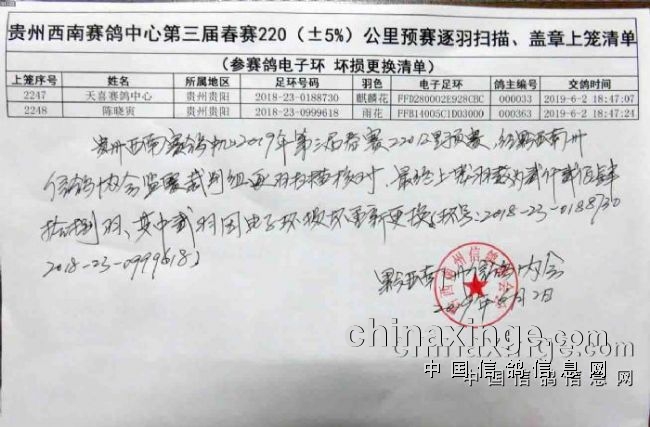 贵州西南赛鸽中心第三届春赛220（±5%）公里预赛逐羽扫描、盖章上笼清单
（参赛鸽电子环 坏损更换清单）
上笼序号 姓名 所属地区 足环号码 羽色 电子足环 鸽主编号 交鸽时间
2247 天喜赛鸽中心 贵州贵阳 2018-23-0188730 麒麟花 FFD280002E928CBC 000033 2019-6-2 18:47:07
2248 陈晓寅 贵州贵阳 2018-23-0999618 雨花 FFB14005C1D03000 000063 2019-6-2 18:47:24
贵州西南赛鸽中心2019年第三届春赛220公里预赛，经黔西南州
信鸽协会监赛裁判组逐羽扫描核对，最终上笼羽数为贰仟贰佰肆
拾捌羽、其中贰羽因电子环损坏重新更换（环号：2018-23-0188730
2018-23-0999618）
黔西南州信鸽协会
2019年6月2日
chinaxinge.com
中国信鸽信息网